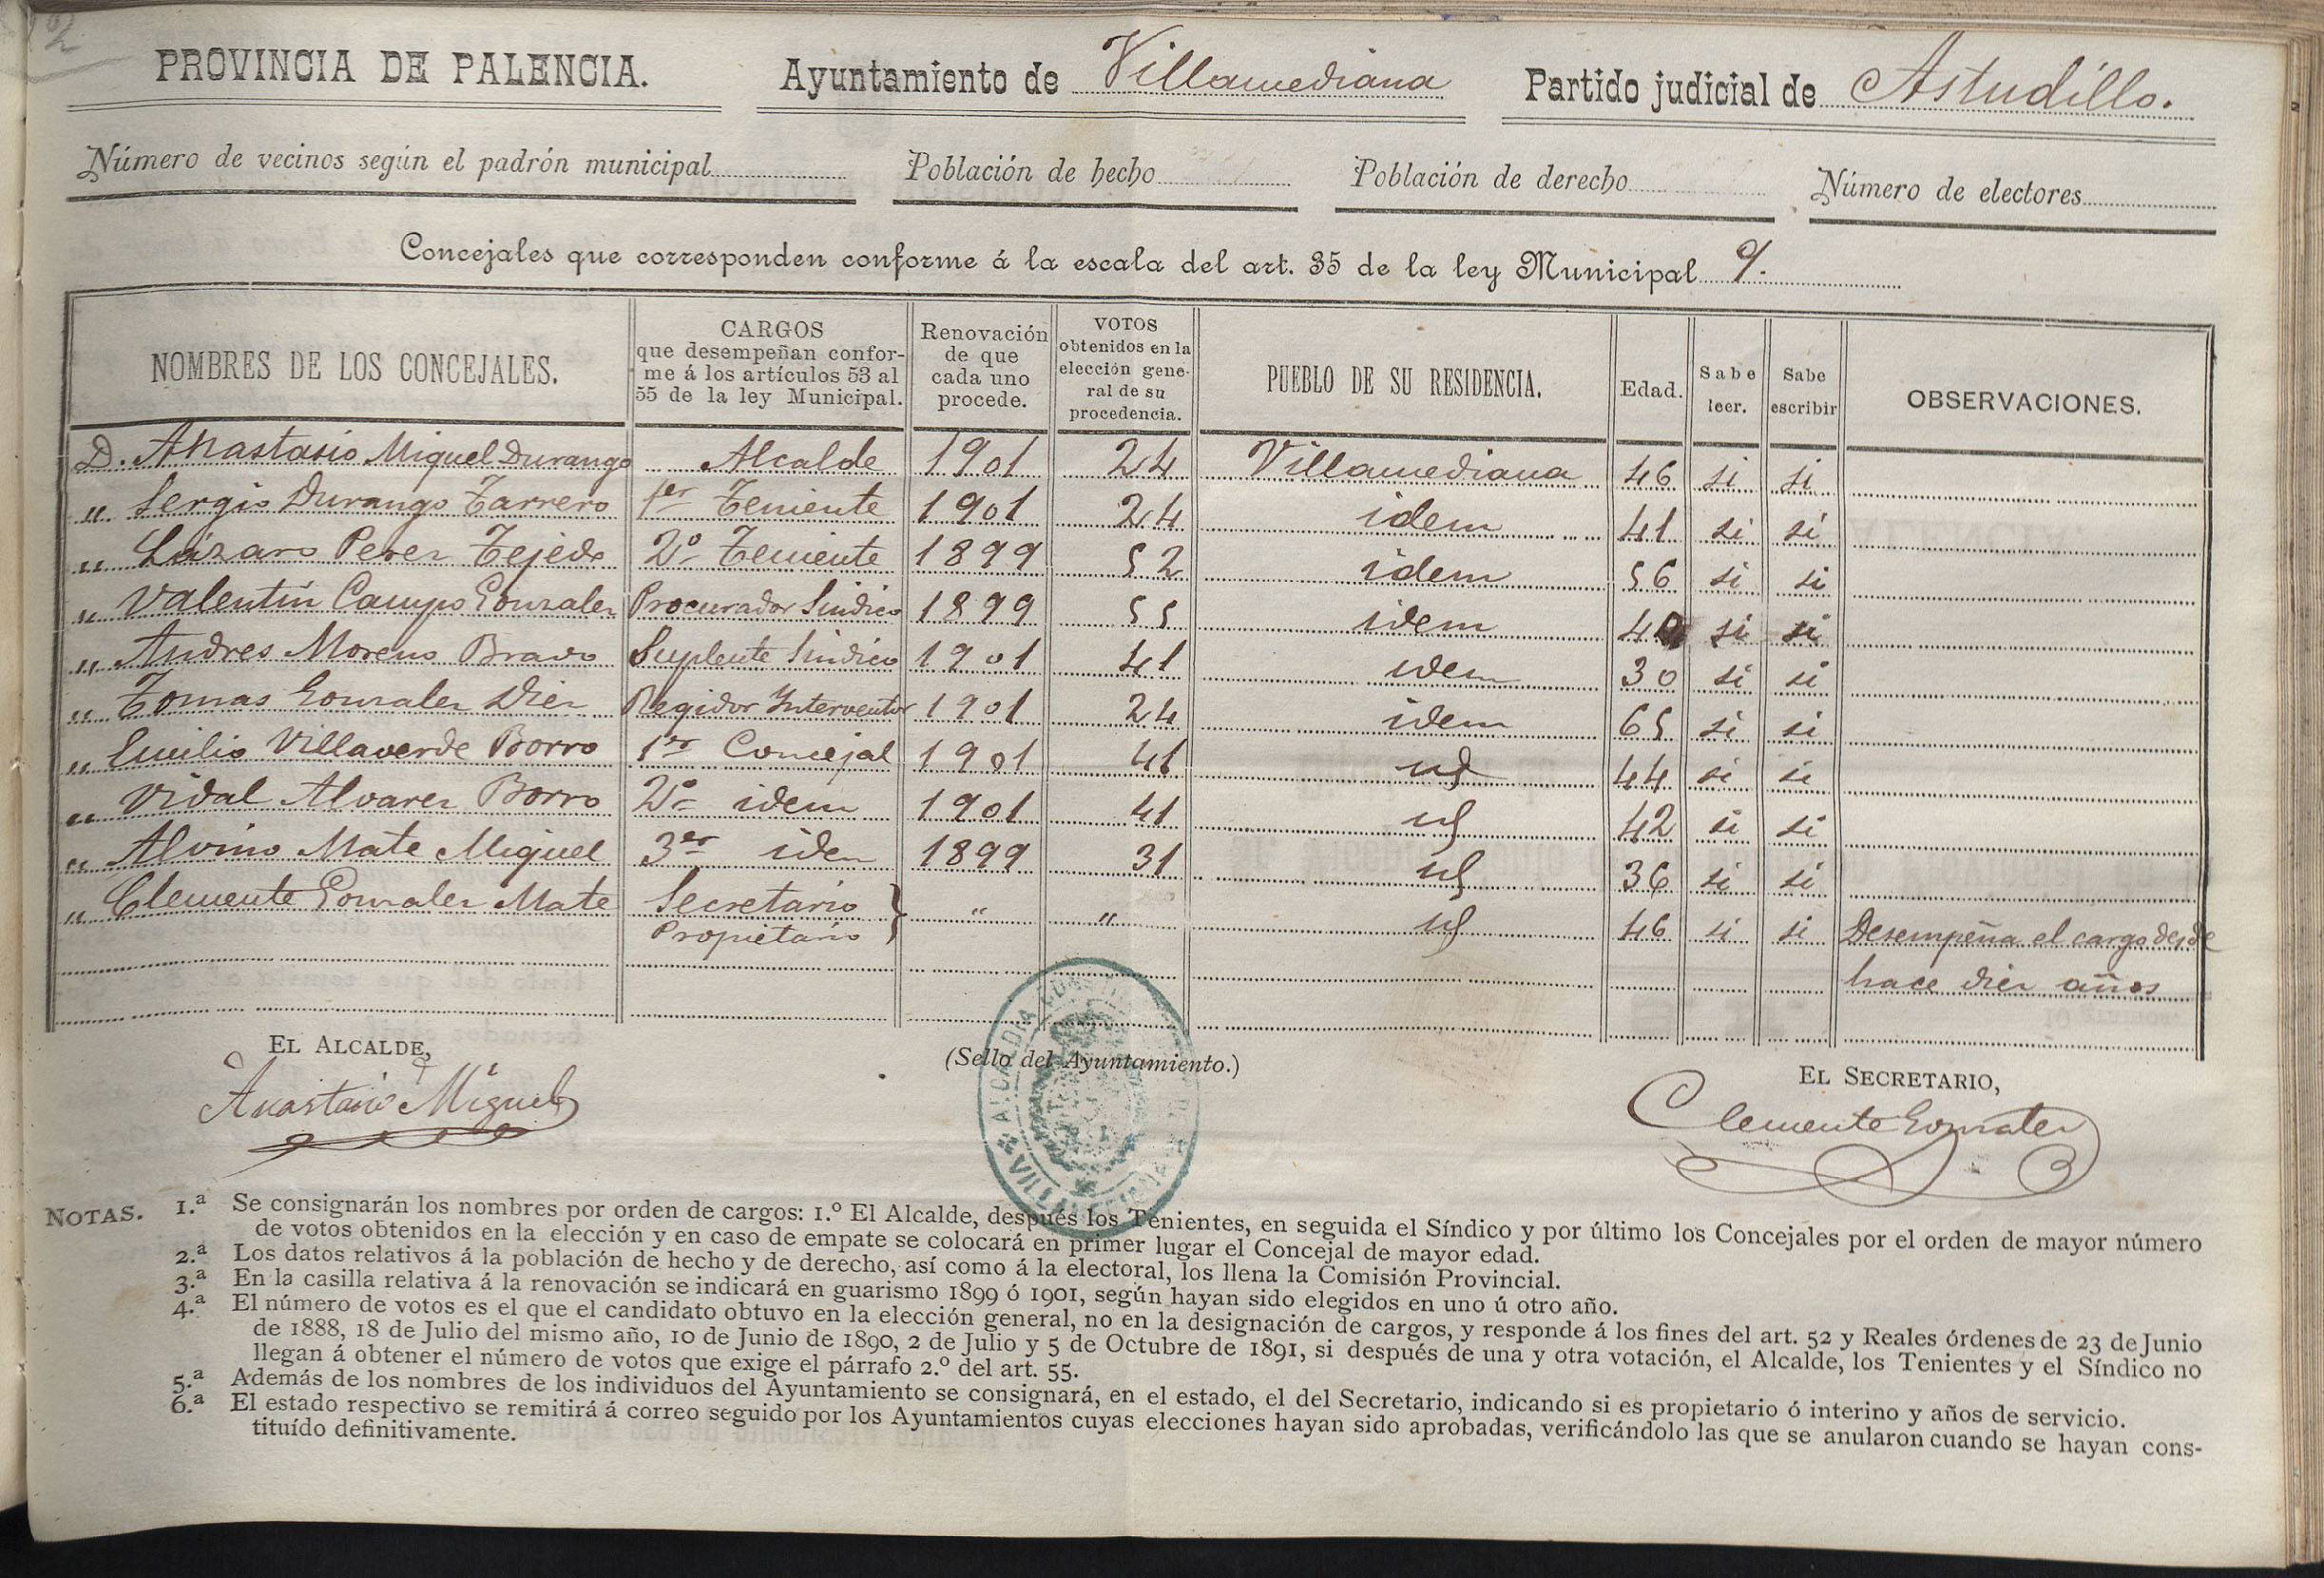 2
PROVINCIA DE PALENCIA. Ayuntamiento de Villamediana Partido judicial de Astudillo.
Número de vecinos según el padrón municipal Población de hecho Población de derecho Número de electores
Concejales que corresponden conforme á la escala del art. 35 de la ley Municipal 9.
NOMBRES DE LOS CONCEJALES.
CARGOS
que desempeñan confor-
me á los artículos 53 al
55 de la ley Municipal.
Renovación
de que
cada uno
procede.
VOTOS
obtenidos en la
elección gene-
ral de su
procedencia.
PUEBLO DE SU RESIDENCIA.
Edad.
Sabe
leer.
Sabe
escribir
OBSERVACIONES.
D. Anastasio Miguel Durango Alcalde 1901 24 Villamediana 46 si si
" Sergio Durango Tarrero 1er Teniente 1901 24 idem 41 si si
" Lázaro Perez Tejedo 2º Teniente 1899 52 idem 56 si si
" Valentín Campo Gonzalez Procurador Sindico 1899 55 idem si si
" Andres Moreno Bravo Suplente Sindico 1901 41 idem 30 si si
" Tomas Gonzalez Diez Regidor Interventor 1901 24 idem 65 si si
" Emilio Villaverde Borro 1er Concejal 1901 41 id 44 si si
" Vidal Alvarez Borro 2º idem 1901 41 id 42 si si
" Alvino Mate Miguel 3er iden 1899 31 id 36 si si
" Clemente Gonzalez Mate Secretario } " " id 46 si si Desempeña el cargo desde
Propietario hace diez años
EL ALCALDE,
(Sello del Ayuntamiento.)
EL SECRETARIO,
Anastasio Miguel
Clemente Gonzalez
ALCALDIA
NOTAS. 1.ª Se consignarán los nombres por orden de cargos: 1.º El Alcalde, después los Tenientes, en seguida el Síndico y por último los Concejales por el orden de mayor número
de votos obtenidos en la elección y en caso de empate se colocará en primer lugar el Concejal de mayor edad.
2.ª Los datos relativos á la población de hecho y de derecho, así como á la electoral, los llena la Comisión Provincial.
3.ª En la casilla relativa á la renovación se indicará en guarismo 1899 ó 1901, según hayan sido elegidos en uno ú otro año.
4.ª El número de votos es el que el candidato obtuvo en la elección general, no en la designación de cargos, y responde á los fines del art. 52 y Reales órdenes de 23 de Junio
de 1888, 18 de Julio del mismo año, 10 de Junio de 1890, 2 de Julio y 5 de Octubre de 1891, si después de una y otra votación, el Alcalde, los Tenientes y el Síndico no
llegan á obtener el número de votos que exige el párrafo 2.º del art. 55.
5.ª Además de los nombres de los individuos del Ayuntamiento se consignará, en el estado, el del Secretario, indicando si es propietario ó interino y años de servicio.
6.ª El estado respectivo se remitirá á correo seguido por los Ayuntamientos cuyas elecciones hayan sido aprobadas, verificándolo las que se anularon cuando se hayan cons-
tituído definitivamente.